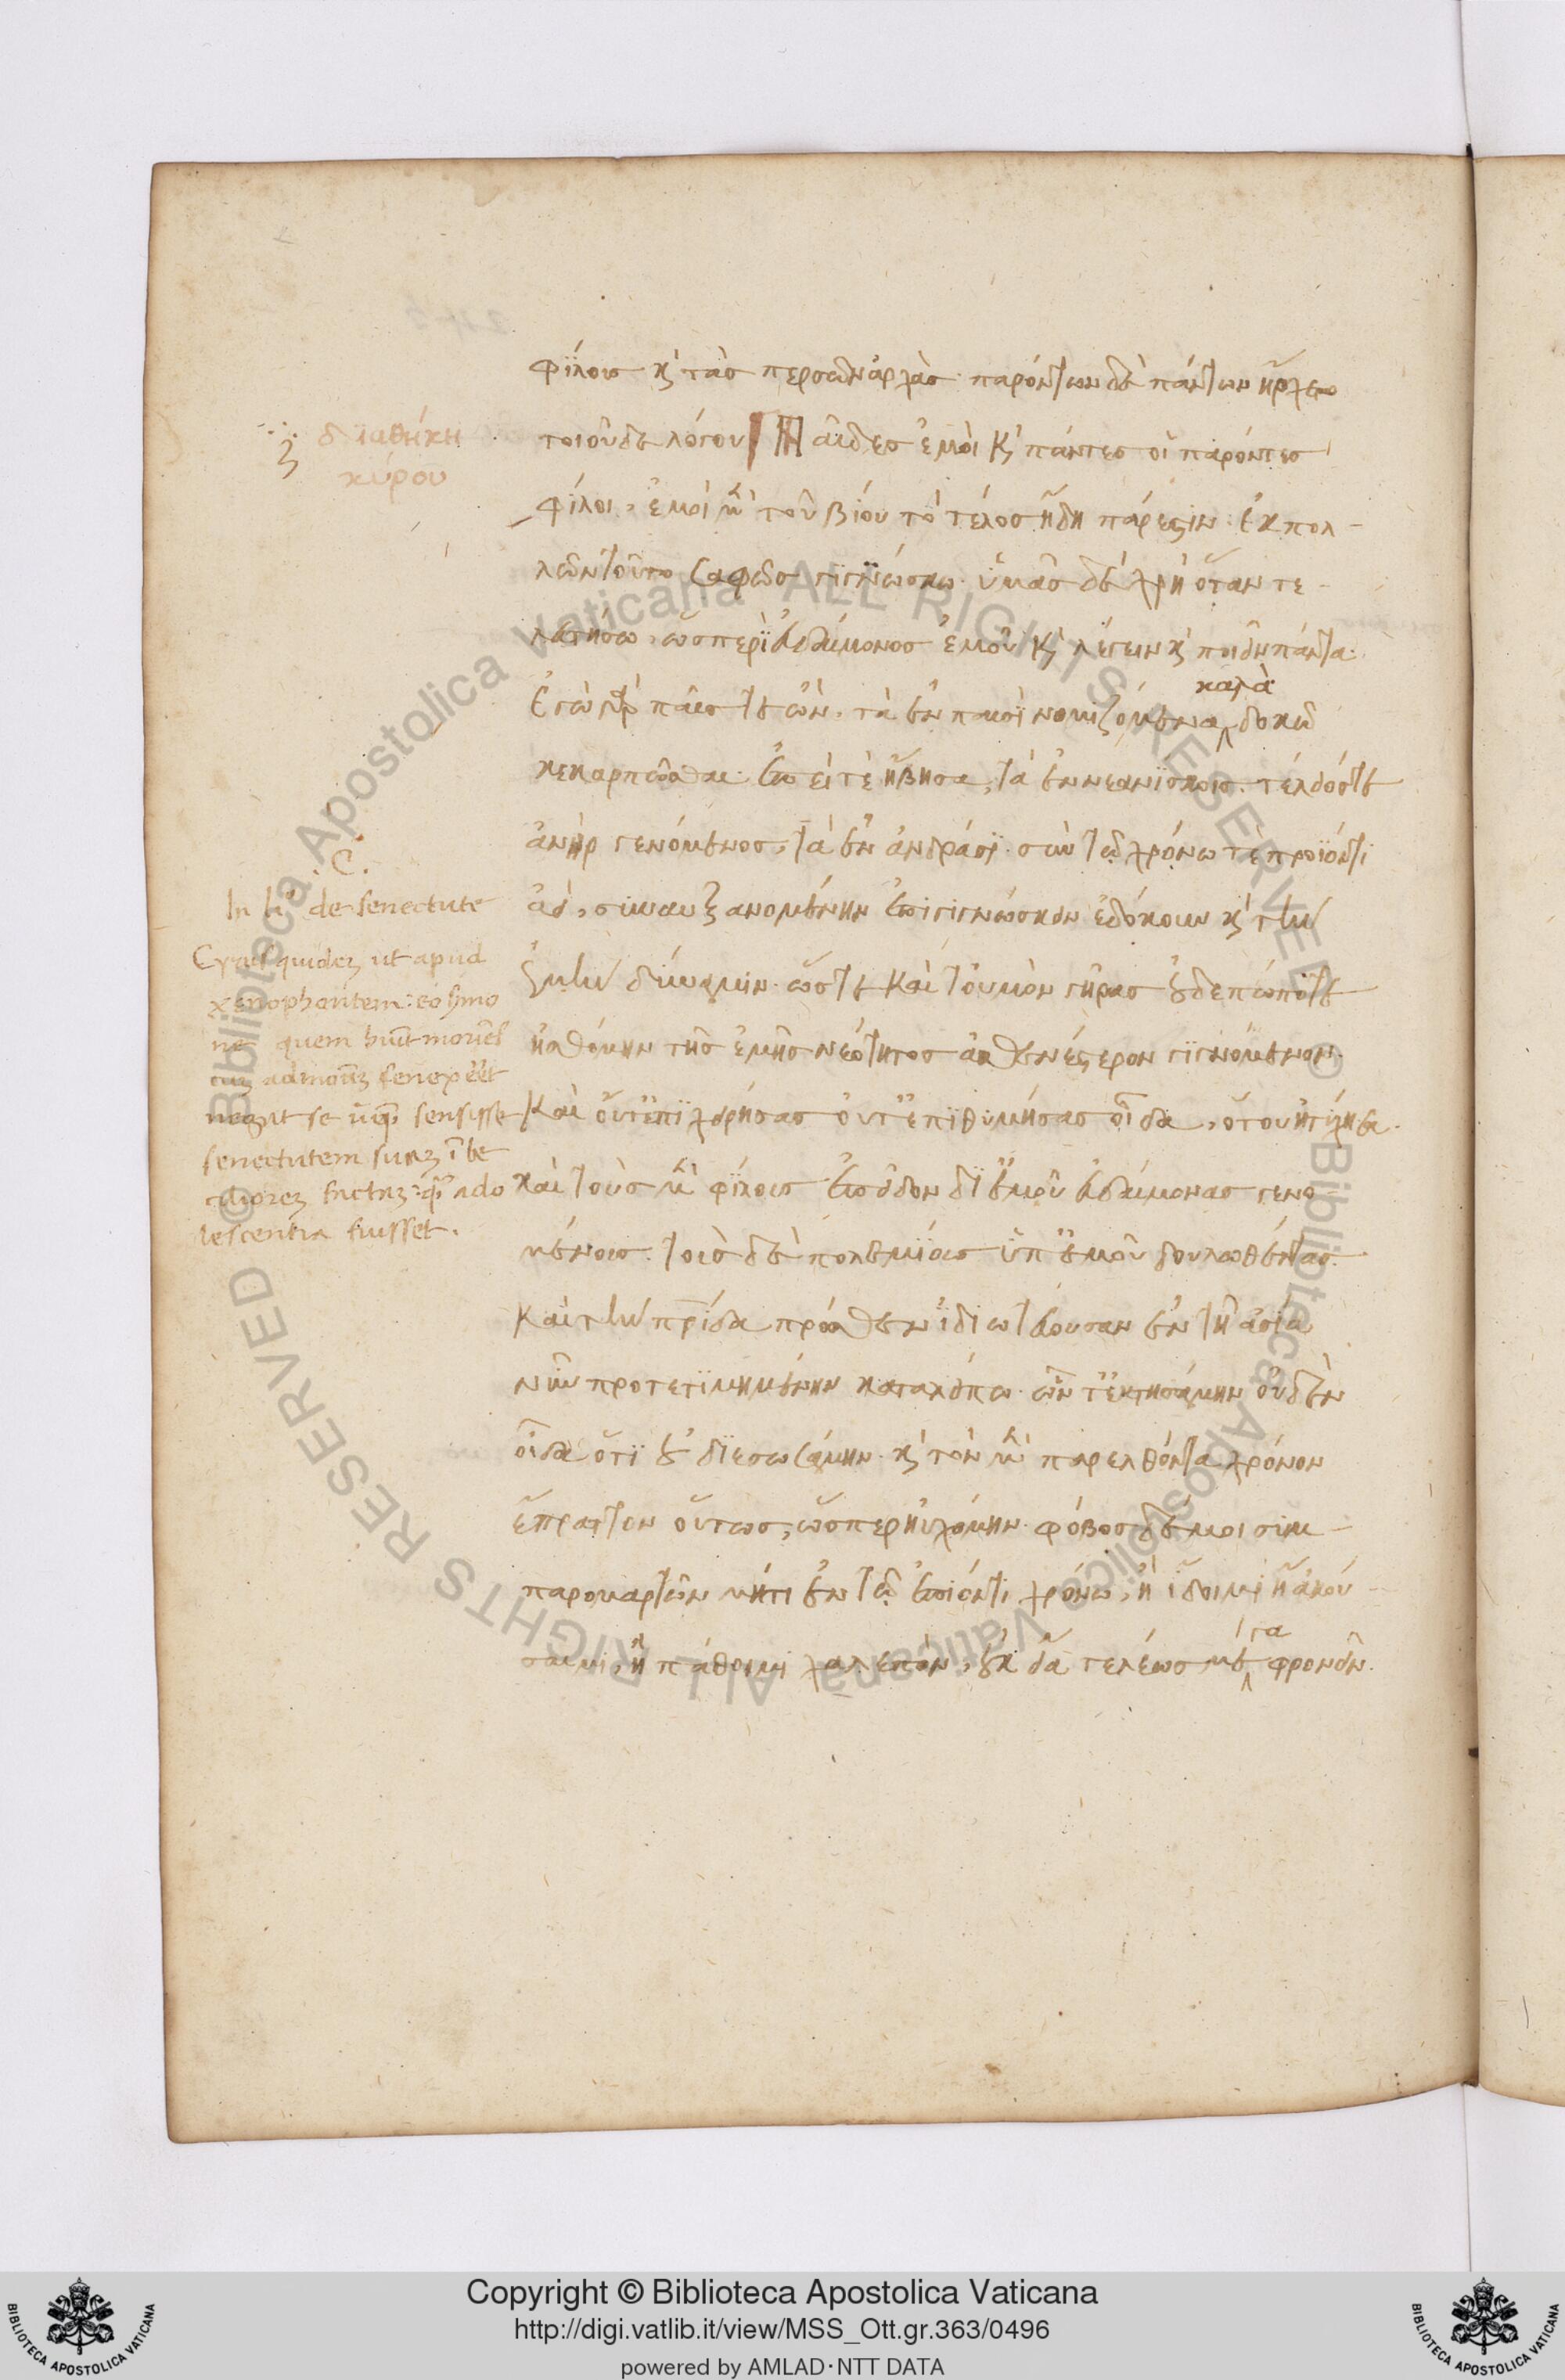 φίλους κ̀ τὰσ περσῶν ἀρχὰσ· παρόντων δὲ πάντων ἤρχετο
τοιοῦδε λόγου Παῖδεσ ἐμοὶ κ̀ πάντεσ οἱ παρόντεσ
φίλοι, ἐμοὶ μὲν τοῦ βίου τὸ τέλοσ ἤδη πάρεστιν· ἐκ πολ-
λῶν τοῦτο σαφῶσ γιγνώσκω· ὑμᾶσ δὲ χρὴ ὅταν τε-
λευτήσω, ὥσπερ εὐδαίμονοσ ἐμοῦ κ̀ λέγειν κ̀ ποιεῖν πάντα·
ἐγὼ γὰρ παῖσ τε ὢν, τὰ ἐν παισὶ νομιζόμενα καλὰ δοκῶ
κεκαρπῶσθαι· ἐπεί τε ἥβησα, τὰ ἐν νεανίσκοισ· τέλειόσ τε
ἀνὴρ γενόμενοσ, τὰ ἐν ἀνδράσι· σὺν τῶ χρόνω τὲ προϊόντι
ἀεὶ, συναυξανομένην ἐπιγιγνώσκειν ἐδόκουν κ̀ τὴν
ἐμὴν δύναμιν· ὥστε καὶ τοὐμὸν γῆρασ οὐδεπώποτε
ἠσθόμην τῆσ ἐμῆσ νεότητοσ ἀσθενέστερον γιγνόμενον·
καὶ οὔτ' ἐπιχειρήσασ οὔτ' ἐπιθυμήσασ οἶδα, ὅτου ἠτύχησα·
καὶ τοὺσ μὲν φίλουσ ἐπεῖδον δι' ἐμοῦ εὐδαίμονασ γενο-
μένουσ· τοὺσ δὲ πολεμίουσ ὑπ' ἐμοῦ δουλωθέντασ·
καὶ τὴν πρίδα πρόσθεν ἰδιωτεύουσαν ἐν τῆ ἀσία
νῦν προτετιμημένην καταλείπω· ὧν τ' ἐκτησάμην οὐδὲν
οἶδα ὅτι οὐ διεσωσάμην· κ̀ τὸν μὲν παρελθόντα χρόνον
ἔπραττον οὕτωσ, ὥσπερ ηὐχόμην· φόβοσ δέ μοι συμ-
παρομαρτῶν μήτι ἐν τῶ ἐπιόντι χρόνω, ἢ ἴδοιμι ἢ ἀκού-
σαιμι, ἢ πάθοιμι χαλεπὸν, οὐκ εἴα τελέωσ μέγα φρονεῖν·
διαθήκη
κύρου
.C.
In li° de senectute
Cyrus quidez ut apud
xenophontem: eo s̄mo
ne quem huit moriēs
cuz admoduz senex ēēt
negat se unqz sensisse
senectutem suaz ībe
cilliorez factaz: qz̄ ado
lescentia fuisset.
Copyright © Biblioteca Apostolica Vaticana
http://digi.vatlib.it/view/MSS_Ott.gr.363/0496
powered by AMLAD·NTT DATA
BIBLIOTECA APOSTOLICA VATICANA
BIBLIOTECA APOSTOLICA VATICANA
© Biblioteca Apostolica Vaticana ALL RIGHTS RESERVED
© Biblioteca Apostolica Vaticana ALL RIGHTS RESERVED